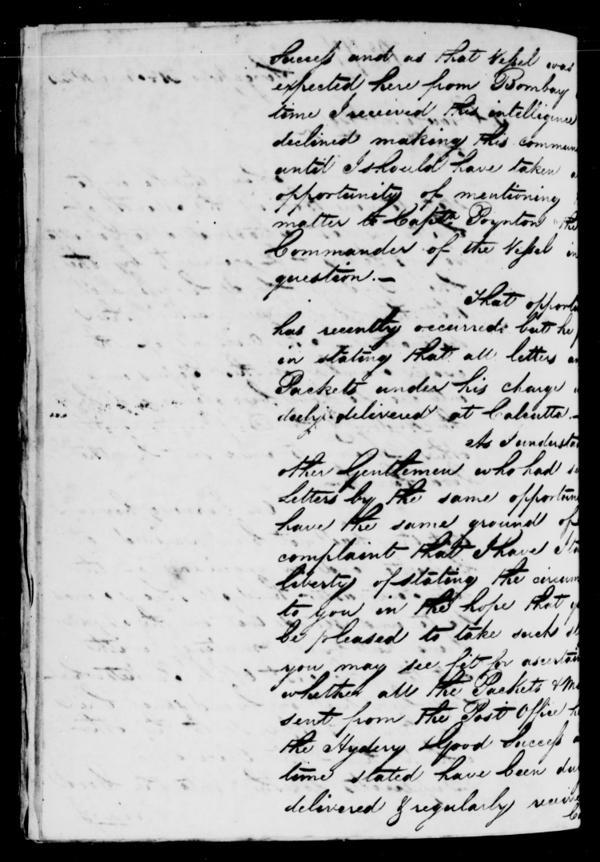 Success and as that Vessel was
expected here from Bombay
time I received this intelligence
declined making this commun
until I should have taken a
opportunity of mentioning
matter to Captn Poynton the
Commander of the Vessel in
question.—
That opportu
has recently occurred; but he
in stating that all letters an
Packets under his charge
duly delivered at Calcutta.—
As I understa
other Gentlemen who had se
Letters by the same opportun
have the same ground of
complaint that I have I ta
liberty of stating the circum
to you in the hope that y
be pleased to take such st
you may see fit for ascertain
whether all the Packets & Ma
sent from the Post Office
the Hydery & Good Success a
time stated have been du
delivered & regularly receiv